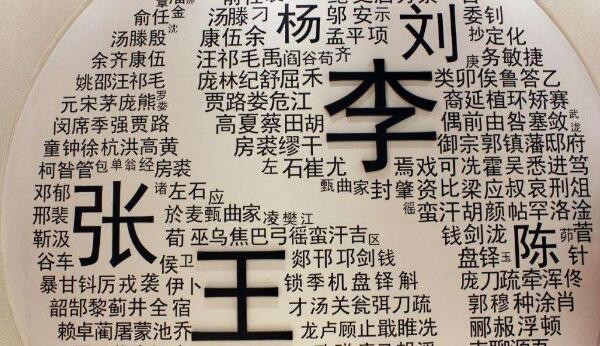 俞任金 刁 杨 邬安示 刘 委钊
汤滕 沈 抄定化
汤滕殷 康伍余 孟平项 庚务敏捷
余齐康伍 汪祁毛禹阎谷茹齐 李 类卯俟鲁答乙
姚邵汪祁毛 庞林纪舒屈禾 裔延植环矫赛
元宋茅庞熊罗娄 贾路娄危江 偶前由昝塞敛武泷
闵席季强贾路 高夏蔡田胡 御宗郭镇藩邸府
童钟徐杭洪高黄 房裘缪干 焉戏可冼霍吴悉进笃
柯昝管包单翁经房裘 左石崔尤 封肇资比梁应叔哀刑俎
邓郁 诸左石应 甄曲家 徭蛮汗胡颜帖罕洛淦
邢裴 张 於麾甄曲家凌樊江 钱剑泷 陈 茆菅
靳汲 荀巫乌焦巴弓徭蛮汗吉区 盘铎玉 针
谷车 侯卫 郯邗邛剑钱 庞刀疏牵浑佟
暴甘钭厉戎袭 伊卜 王 锁季机盘铎斛 郭穆种涂肖
韶郜黎蓟井全宿 才汤关瓮弭刀疏 郦郝浮顿
赖卓蔺屠蒙池乔 龙卢顾止戢睢冼